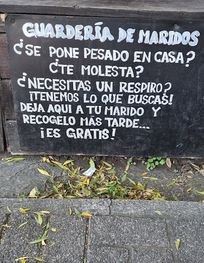 GUARDERÍA DE MARIDOS
¿SE PONE PESADO EN CASA?
¿TE MOLESTA?
¿NECESITAS UN RESPIRO?
¡TENEMOS LO QUE BUSCAS!
DEJA AQUI A TU MARIDO Y
RECOGELO MÁS TARDE...
¡ES GRATIS!